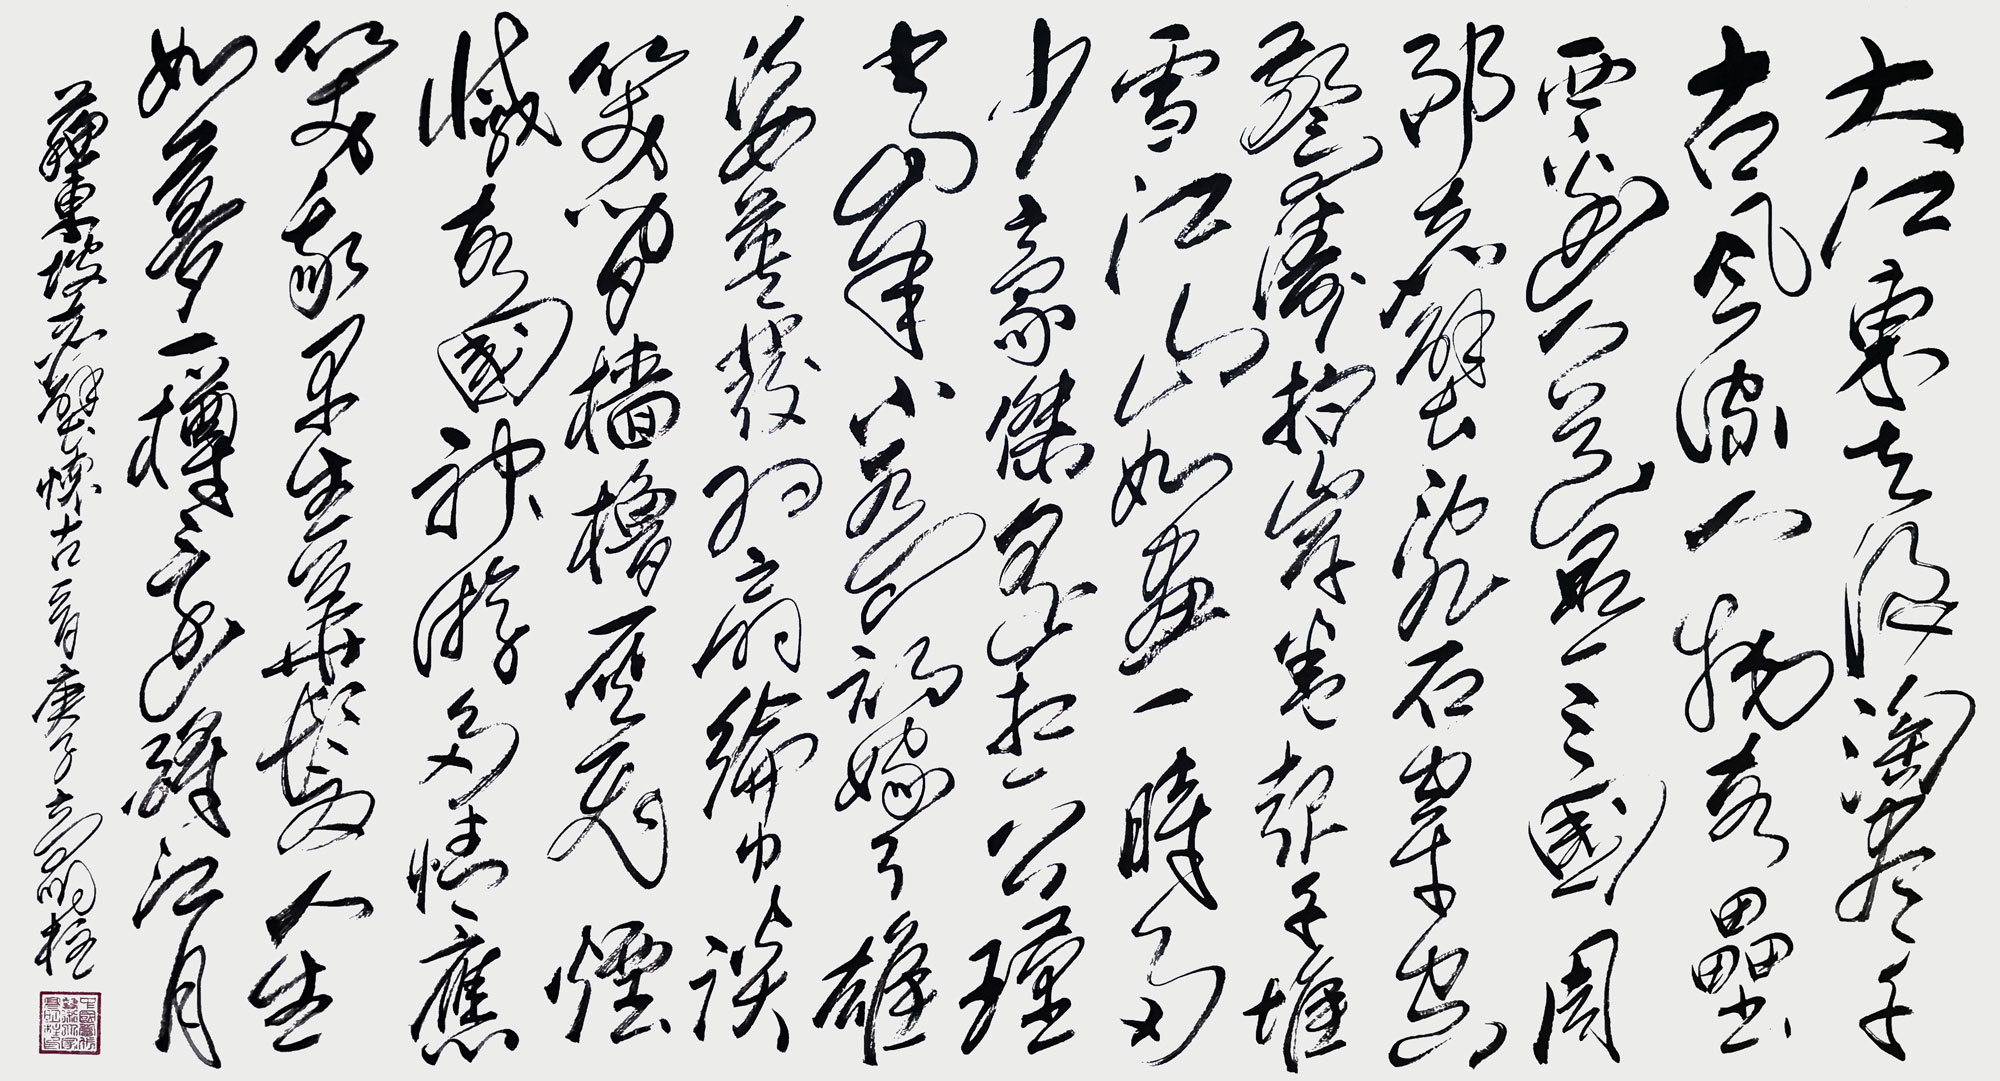 大江東去浪淘盡千
古風流人物故壘
西邊人道是三國周
郎赤壁亂石穿空
驚濤拍岸卷起千堆
雪江山如畫一時多
少豪傑遙想公瑾
當年小喬初嫁了雄
姿英發羽扇綸巾談
笑間檣櫓灰飛煙
滅故國神游多情應
笑我早生華髮人生
如夢一樽還酹江月
蘇東坡赤壁懷古一首庚子